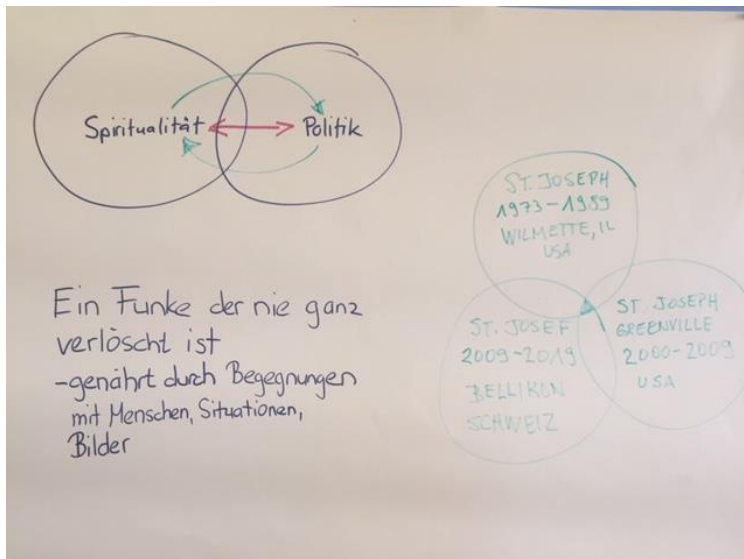 Spiritualität
Politik
Ein Funke der nie ganz
verlöscht ist
-genährt durch Begegnungen
mit Menschen, Situationen,
Bilder
ST. JOSEPH
1973-1989
WILMETTE, IL
USA
ST. JOSEF
2009-2019
BELLIKON
SCHWEIZ
ST JOSEPH
GREENVILLE
2000-2009
USA